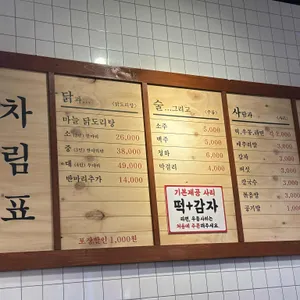 차림표
닭과... (닭도리탕)
마늘 닭도리탕
소 (2인) 한마리 26,000
중 (3인) 한마리반 38,000
대 (4인) 두마리 49,000
반마리추가 14,000
포장할인 1,000원
술...그리고
소주 5,000
맥주 5,000
청하 6,000
막걸리 4,000
기본제공 사리
떡+감자
라면, 우동사리는
처음에 주문해주세요.
사리와
떡, 우동, 라면
감자
버섯
칼국수
볶음밥
공기밥